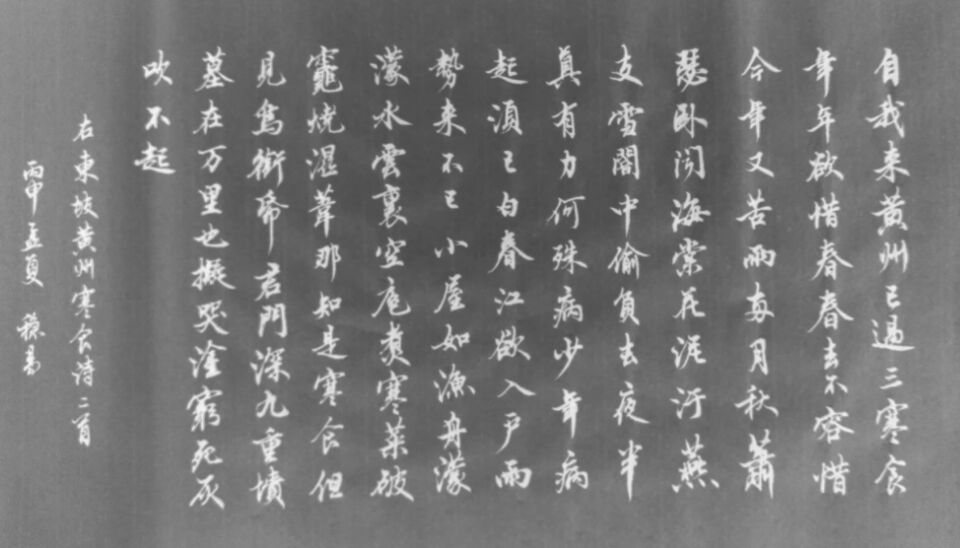 自我来黃州已過三寒食
年年欲惜春春去不容惜
今年又苦雨每月秋蕭
瑟卧闻海棠花泥汙燕
支雪闇中偷負去夜半
真有力何殊病少年病
起須已白春江欲入戶雨
勢来不已小屋如漁舟濛
濛水雲裏空庖煮寒菜破
竈燒濕葦那知是寒食但
見烏銜帋君門深九重墳
墓在万里也擬哭塗窮死灰
吹不起
右東坡黄州寒食诗二首
丙申孟夏